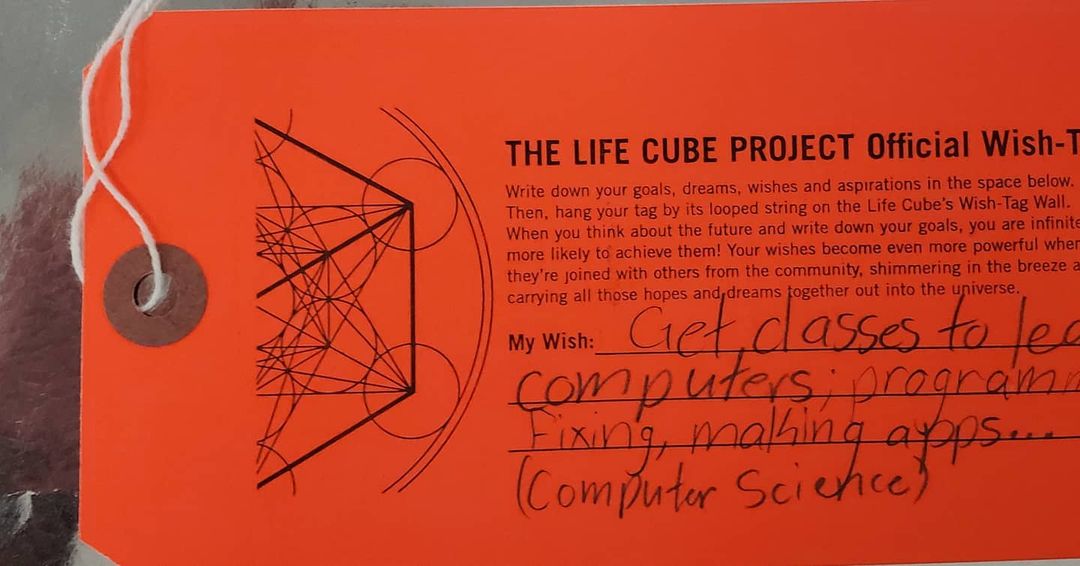 THE LIFE CUBE PROJECT Official Wish-T
Write down your goals, dreams, wishes and aspirations in the space below.
Then, hang your tag by its looped string on the Life Cube's Wish-Tag Wall.
When you think about the future and write down your goals, you are infinite
more likely to achieve them! Your wishes become even more powerful when
they're joined with others from the community, shimmering in the breeze a
carrying all those hopes and dreams together out into the universe.
My Wish: Get classes to lea
computers; programm
Fixing, making apps...
(Computer Science)